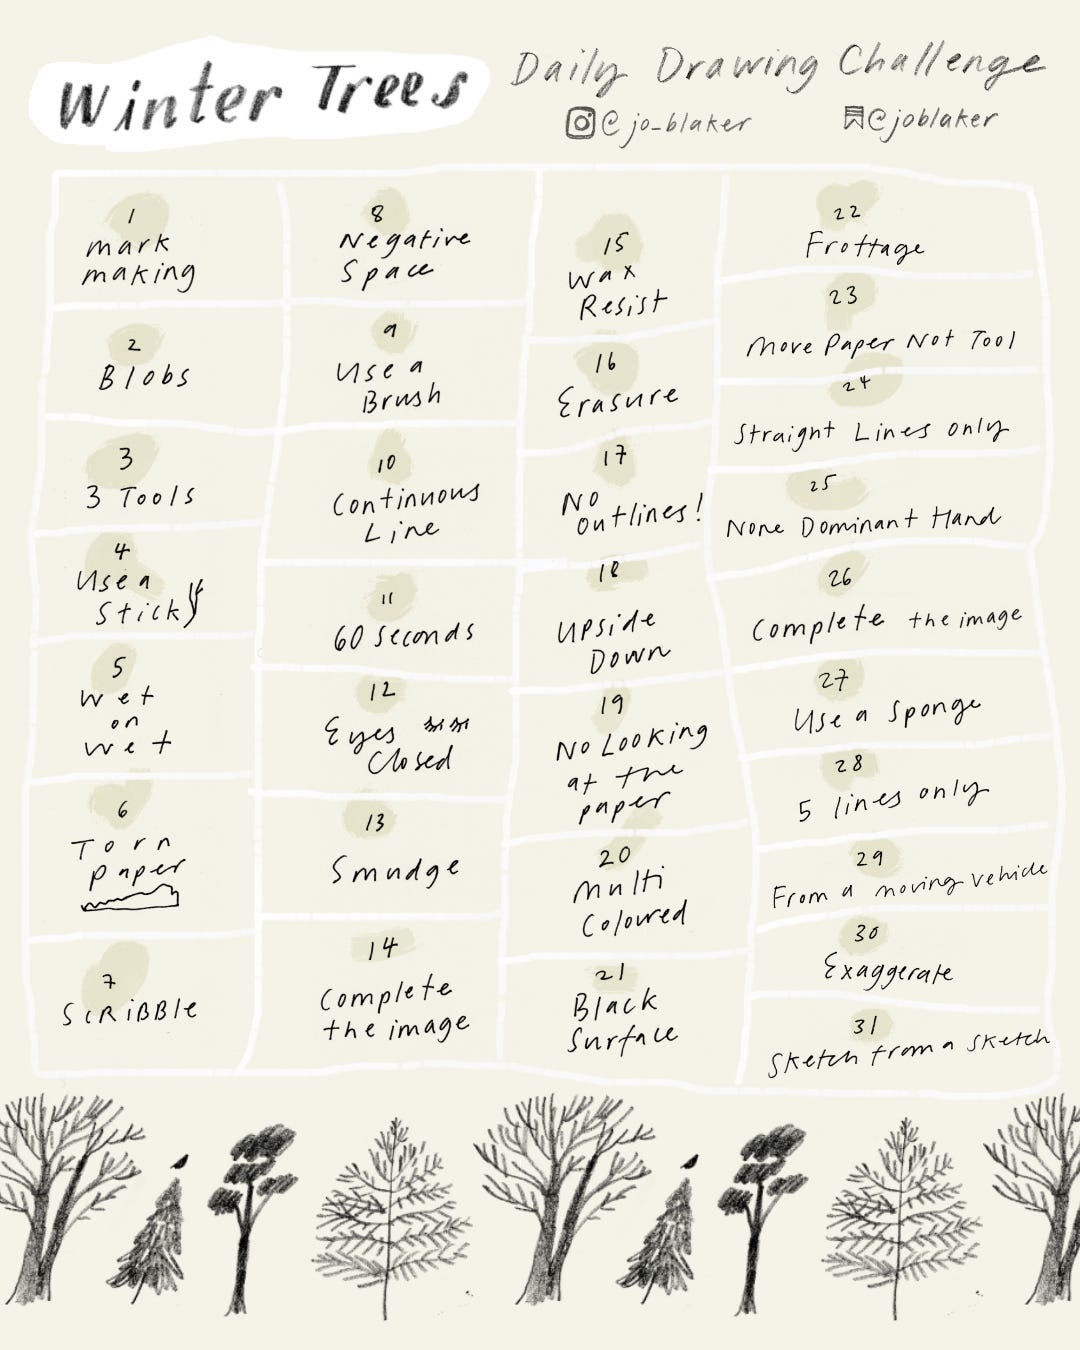 Winter Trees
Daily Drawing Challenge
@jo_blaker
@joblaker
1
mark
making
2
Blobs
3
3 Tools
4
Use a
Stick
5
Wet
on
wet
6
Torn
paper
7
SCRiBBle
8
Negative
Space
9
Use a
Brush
10
Continuous
Line
11
60 seconds
12
Eyes
Closed
13
Smudge
14
Complete
the image
15
Wax
Resist
16
Erasure
17
No
Outlines!
18
Upside
Down
19
No Looking
at the
paper
20
Multi
Coloured
21
Black
Surface
22
Frottage
23
Move Paper Not Tool
24
Straight Lines only
25
None Dominant Hand
26
Complete the image
27
Use a Sponge
28
5 lines only
29
From a moving vehicle
30
Exaggerate
31
Sketch from a sketch